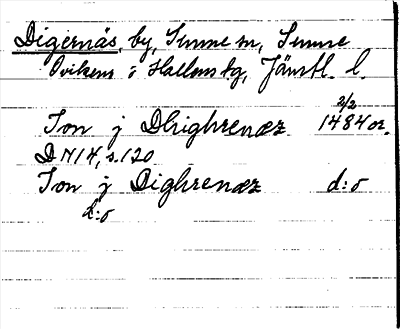 Digernäs, by, Sunne sn, Sunne
Ovikens o Hallens tg, Jämtl. l.
2/2
Jon j Dhighrenæz 1484 or.
DN 14, s. 120
Jon j Dighrenæz d:o
d:o